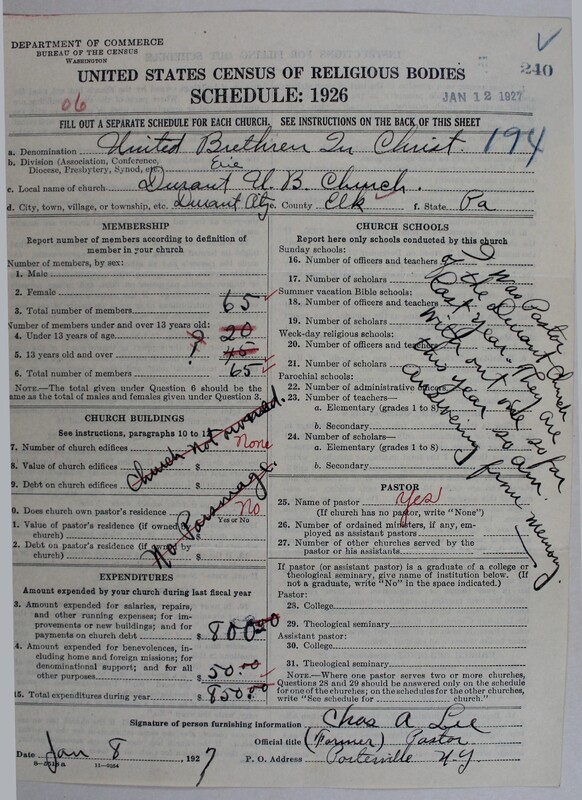 DEPARTMENT OF COMMERCE
BUREAU OF THE CENSUS
WASHINGTON
240
UNITED STATES CENSUS OF RELIGIOUS BODIES
SCHEDULE: 1926
06
JAN 12 1927
FILL OUT A SEPARATE SCHEDULE FOR EACH CHURCH. SEE INSTRUCTIONS ON THE BACK OF THIS SHEET
a. Denomination United Brethren In Christ. 194
b. Division (Association, Conference, Diocese, Presbytery, Synod, etc. Erie
c. Local name of church Durant U. B. Church.
d. City, town, village, or township, etc. Durant City e. County Elk f. State Pa
MEMBERSHIP
Report number of members according to definition of
member in your church
Number of members, by sex:
1. Male
2. Female
3. Total number of members 65
Number of members under and over 13 years old:
4. Under 13 years of age ? 20
5. 13 years old and over ? 45
6. Total number of members 65
NOTE.—The total given under Question 6 should be the
same as the total of males and females given under Question 3.
CHURCH BUILDINGS
See instructions, paragraphs 10 to 1
7. Number of church edifices none
8. Value of church edifices $
9. Debt on church edifices $
Church not owned.
0. Does church own pastor's residence No
Yes or No
1. Value of pastor's residence (if owned by
church) $
2. Debt on pastor's residence (if owned by
church) $
No Parsonage.
EXPENDITURES
Amount expended by your church during last fiscal year
3. Amount expended for salaries, repairs,
and other running expenses; for im-
provements or new buildings; and for
payments on church debt $ 800.00
4. Amount expended for benevolences, in-
cluding home and foreign missions; for
denominational support; and for all
other purposes $ 50.00
15. Total expenditures during year $ 850.00
CHURCH SCHOOLS
Report here only schools conducted by this church
Sunday schools:
16. Number of officers and teachers
17. Number of scholars
Summer vacation Bible schools:
18. Number of officers and teachers
19. Number of scholars
Week-day religious schools:
20. Number of officers and teachers
21. Number of scholars
Parochial schools:
22. Number of administrative officers
23. Number of teachers—
a. Elementary (grades 1 to 8)
b. Secondary
24. Number of scholars—
a. Elementary (grades 1 to 8)
b. Secondary
I was Pastor
of the Durant Church
last year. They are
without one so far
this year so am
answering from memory.
PASTOR
25. Name of pastor yes
(If church has no pastor, write "None")
26. Number of ordained ministers, if any, em-
ployed as assistant pastors
27. Number of other churches served by the
pastor or his assistants
If pastor (or assistant pastor) is a graduate of a college or
theological seminary, give name of institution below. (If
not a graduate, write "No" in the space indicated.)
Pastor:
28. College
29. Theological seminary
Assistant pastor:
30. College
31. Theological seminary
NOTE.—Where one pastor serves two or more churches,
Questions 28 and 29 should be answered only on the schedule
for one of the churches; on the schedules for the other churches,
write "See schedule for church."
Signature of person furnishing information Chas A Lee
Official title (Former) Pastor
Date Jan 8, 1927 P. O. Address Portville N.Y.
11-9034